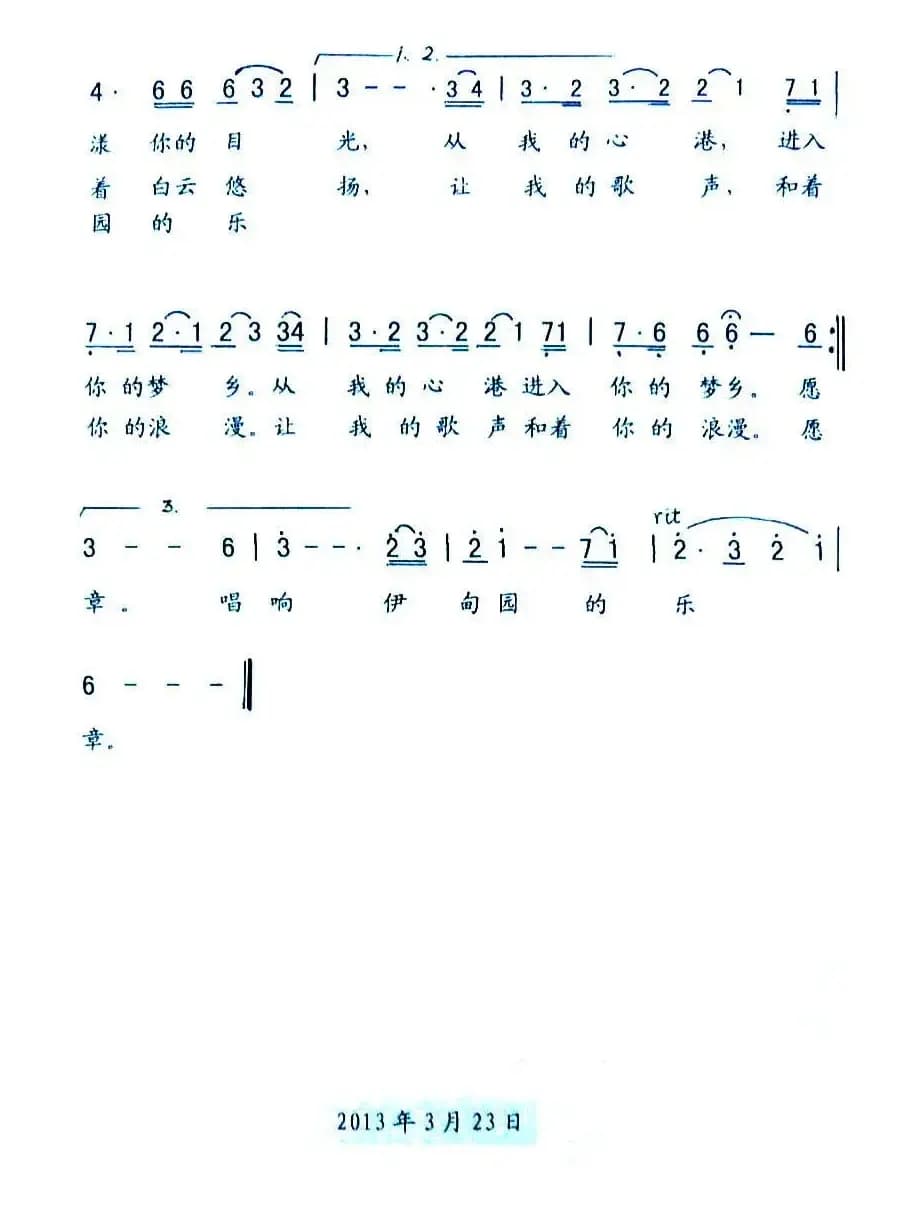 1. 2.
4· 66 6 3 2 | 3 - - · 3 4 | 3· 2 3· 2 2 1 7 1 |
漾 你的 目 光, 从 我 的 心 港, 进入
着 白云 悠 扬, 让 我 的 歌 声, 和着
园 的 乐
7·1 2·1 2 3 34 | 3·2 3·2 2 1 71 | 7·6 6 6 — 6 :||
你 的 梦 乡。从 我 的 心 港 进入 你 的 梦乡。 愿
你 的 浪 漫。让 我 的 歌 声 和着 你 的 浪漫。 愿
3.
rit
3 - - 6 | 3 - - · 2 3 | 2 1 - - 7 1 | 2· 3 2 1 |
章。 唱 响 伊 甸 园 的 乐
6 - - - ||
章。
2013 年 3 月 23 日